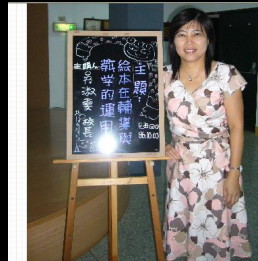 主題:
繪本在輔導與
教學的運用
主講人:
吳淑雯 校長